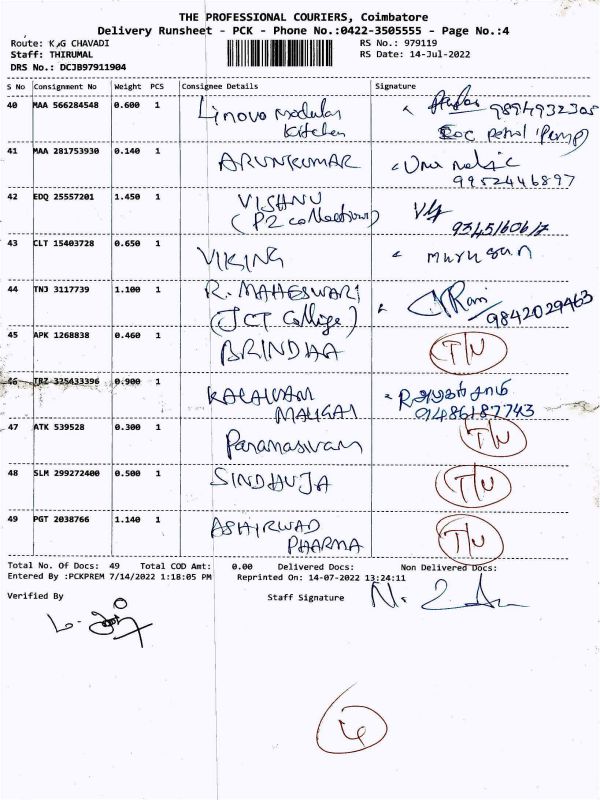 THE PROFESSIONAL COURIERS, Coimbatore
Delivery Runsheet - PCK - Phone No.:0422-3505555 - Page No.:4
Route: K.G CHAVADI
Staff: THIRUMAL
DRS No.: DCJB97911904
RS No.: 979119
RS Date: 14-Jul-2022
S No Consignment No Weight PCS Consignee Details Signature
40 MAA 566284548 0.600 1 Linovo modular 9894932305
Kitchen Petrol Pump)
41 MAA 281753930 0.140 1 ARUNKUMAR
9952446897
42 EDQ 25557201 1.450 1 VISHNU
(P2 collections)
43 CLT 15403728 0.650 1 VIKING murugan
44 TNJ 3117739 1.100 1 R. MAHESWARI
(JCT College) 9842029463
45 APK 1268838 0.460 1 BRINDHA T/N
46 TRZ 325433396 0.900 1 KALAIVANI
MALIGAI 01486187743
47 ATK 539528 0.300 1 Paramasivam T/N
48 SLM 299272400 0.500 1 SINDHUJA T/N
49 PGT 2038766 1.140 1 ASHIRWAD
PHARMA T/N
Total No. Of Docs: 49 Total COD Amt: 0.00 Delivered Docs: Non Delivered Docs:
Entered By :PCKPREM 7/14/2022 1:18:05 PM Reprinted On: 14-07-2022 13:24:11
Verified By Staff Signature